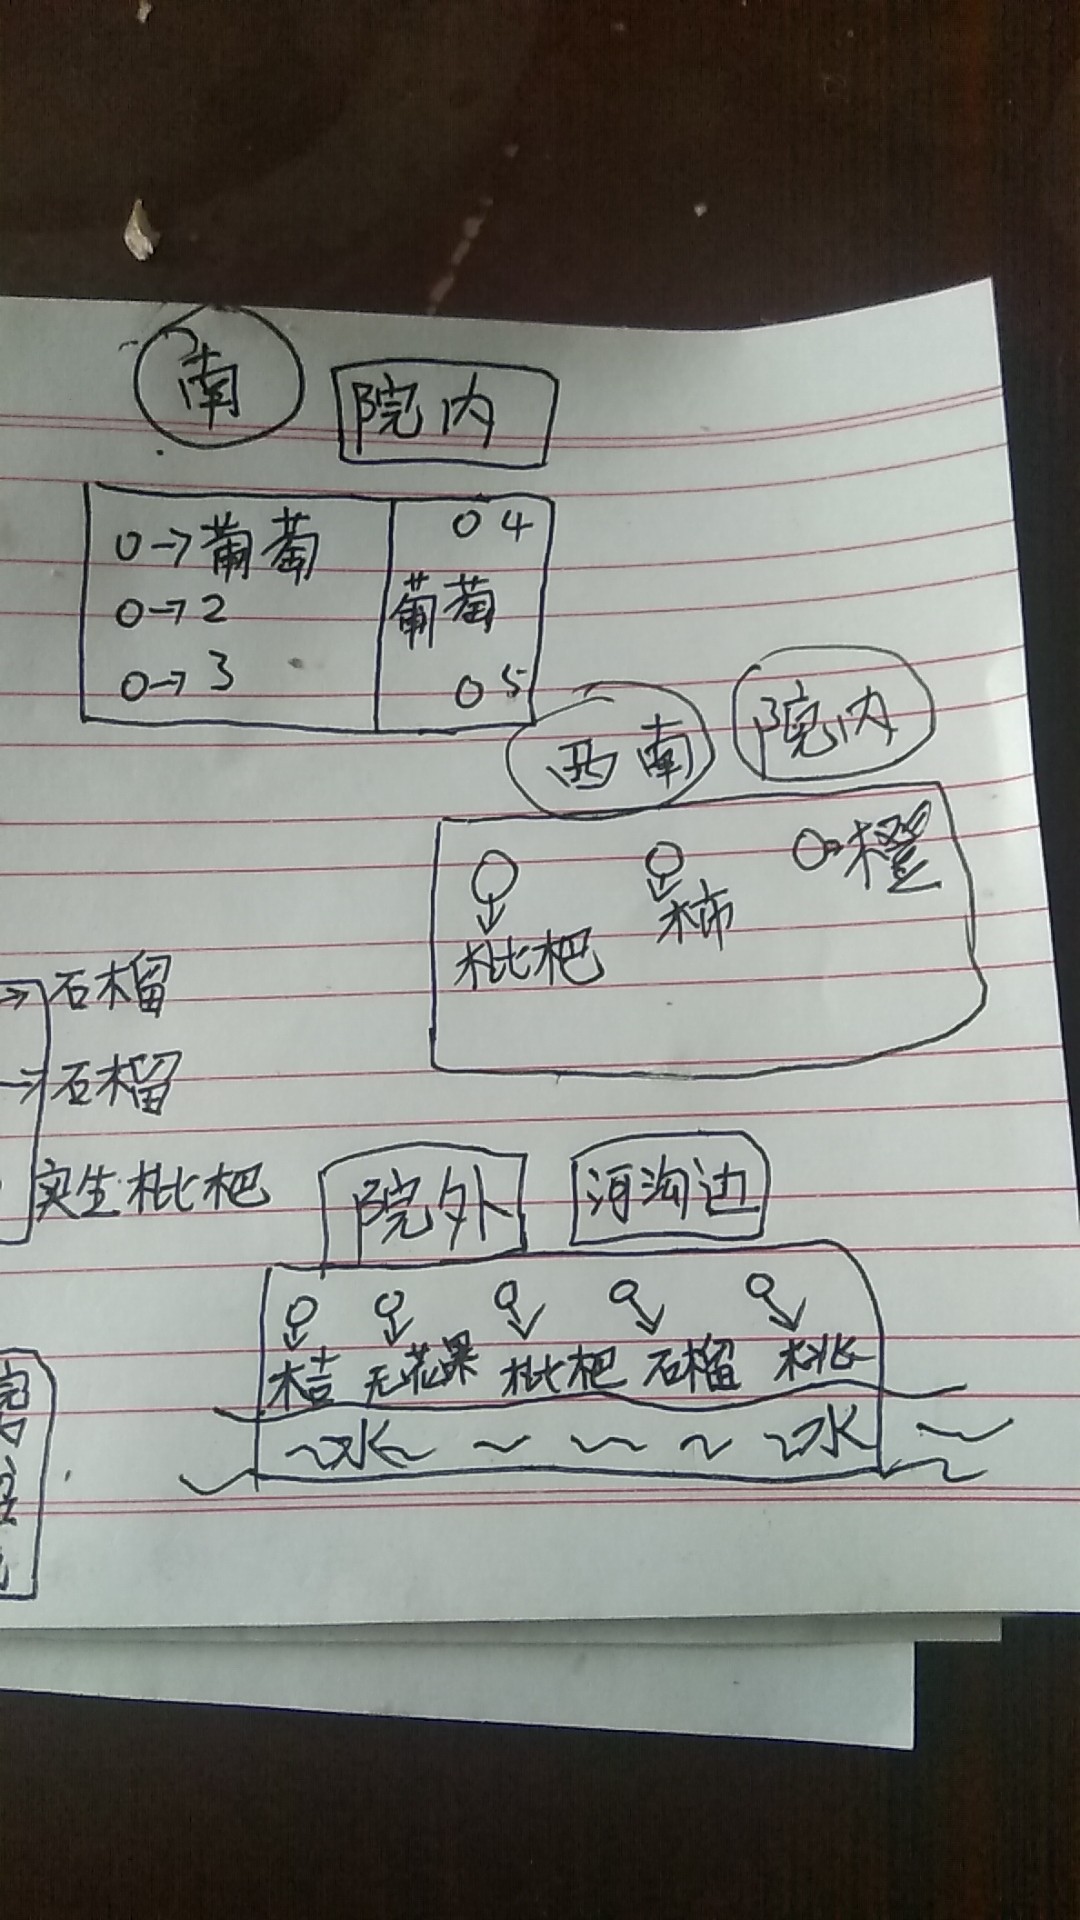 南 院内
0→葡萄
0→2
0→3
04
葡萄
05
西南 院内
枇杷 柿 橙
石榴
石榴
实生枇杷
院外 河沟边
桔 无花果 枇杷 石榴 桃
水 水